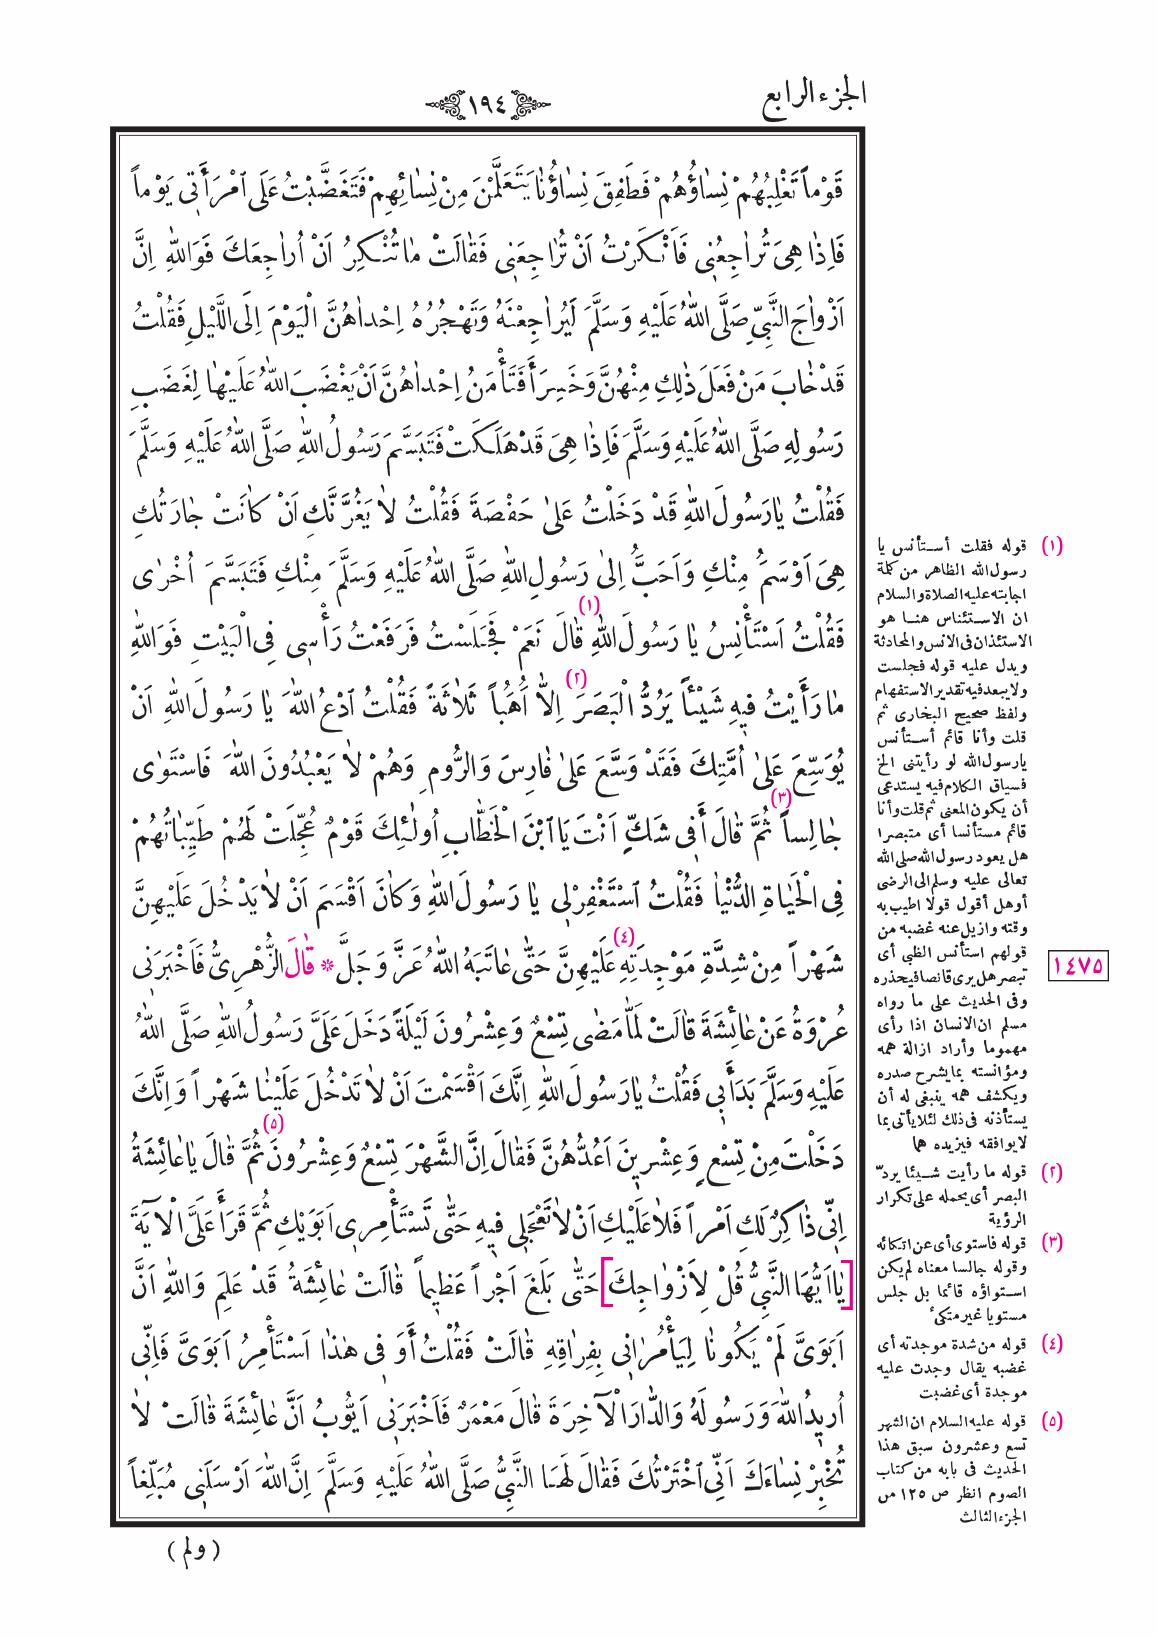 الجزء الرابع
١٩٤
قَوْماً تَغْلِبُهُمْ نِسَاؤُهُمْ فَطَفِقَ نِسَاؤُنَا يَتَعَلَّمْنَ مِنْ نِسَائِهِمْ فَتَغَضَّبْتُ عَلَى امْرَأَتِى يَوْماً
فَاِذَا هِىَ تُرَاجِعُنِى فَأَنْكَرْتُ اَنْ تُرَاجِعَنِى فَقَالَتْ مَا تُنْكِرُ اَنْ اُرَاجِعَكَ فَوَاللّٰهِ اِنَّ
اَزْوَاجَ النَّبِىِّ صَلَّى اللّٰهُ عَلَيْهِ وَسَلَّمَ لَيُرَاجِعْنَهُ وَتَهْجُرُهُ اِحْدَاهُنَّ الْيَوْمَ اِلَى اللَّيْلِ فَقُلْتُ
قَدْ خَابَ مَنْ فَعَلَ ذٰلِكِ مِنْهُنَّ وَخَسِرَ أَفَتَأْمَنُ اِحْدَاهُنَّ اَنْ يَغْضَبَ اللّٰهُ عَلَيْهَا لِغَضَبِ
رَسُولِهِ صَلَّى اللّٰهُ عَلَيْهِ وَسَلَّمَ فَاِذَا هِىَ قَدْ هَلَكَتْ فَتَبَسَّمَ رَسُولُ اللّٰهِ صَلَّى اللّٰهُ عَلَيْهِ وَسَلَّمَ
فَقُلْتُ يَا رَسُولَ اللّٰهِ قَدْ دَخَلْتُ عَلىٰ حَفْصَةَ فَقُلْتُ لَا يَغُرَّنَّكِ اَنْ كَانَتْ جَارَتُكِ
هِىَ اَوْسَمُ مِنْكِ وَاَحَبَّ اِلىٰ رَسُولِ اللّٰهِ صَلَّى اللّٰهُ عَلَيْهِ وَسَلَّمَ مِنْكِ فَتَبَسَّمَ اُخْرَى
فَقُلْتُ اَسْتَأْنِسُ يَا رَسُولَ اللّٰهِ (١) قَالَ نَعَمْ فَجَلَسْتُ فَرَفَعْتُ رَأْسِى فِى الْبَيْتِ فَوَاللّٰهِ
مَا رَأَيْتُ فِيهِ شَيْئاً يَرُدُّ الْبَصَرَ (٢) اِلَّا اُهُباً ثَلَاثَةً فَقُلْتُ ادْعُ اللّٰهَ يَا رَسُولَ اللّٰهِ اَنْ
يُوَسِّعَ عَلىٰ اُمَّتِكَ فَقَدْ وَسَّعَ عَلىٰ فَارِسَ وَالرُّومِ وَهُمْ لَا يَعْبُدُونَ اللّٰهَ فَاسْتَوٰى
جَالِساً (٣) ثُمَّ قَالَ أَفِى شَكٍّ اَنْتَ يَا ابْنَ الْخَطَّابِ اُولٰئِكَ قَوْمٌ عُجِّلَتْ لَهُمْ طَيِّبَاتُهُمْ
فِى الْحَيَاةِ الدُّنْيَا فَقُلْتُ اسْتَغْفِرْلِى يَا رَسُولَ اللّٰهِ وَكَانَ اَقْسَمَ اَنْ لَا يَدْخُلَ عَلَيْهِنَّ
شَهْراً مِنْ شِدَّةِ مَوْجِدَتِهِ (٤) عَلَيْهِنَّ حَتّٰى عَاتَبَهُ اللّٰهُ عَزَّ وَجَلَّ * قَالَ الزُّهْرِىُّ فَاَخْبَرَنِى
عُرْوَةُ عَنْ عَائِشَةَ قَالَتْ لَمَّا مَضٰى تِسْعٌ وَعِشْرُونَ لَيْلَةً دَخَلَ عَلَىَّ رَسُولُ اللّٰهِ صَلَّى اللّٰهُ
عَلَيْهِ وَسَلَّمَ بَدَأَبِى فَقُلْتُ يَا رَسُولَ اللّٰهِ اِنَّكَ اَقْسَمْتَ اَنْ لَا تَدْخُلَ عَلَيْنَا شَهْراً وَاِنَّكَ
دَخَلْتَ مِنْ تِسْعٍ وَعِشْرِينَ اَعُدُّهُنَّ فَقَالَ اِنَّ الشَّهْرَ تِسْعٌ وَعِشْرُونَ (٥) ثُمَّ قَالَ يَا عَائِشَةُ
اِنِّى ذَاكِرٌ لَكِ اَمْراً فَلَا عَلَيْكِ اَنْ لَا تَعْجَلِى فِيهِ حَتّٰى تَسْتَأْمِرِى اَبَوَيْكِ ثُمَّ قَرَأَ عَلَىَّ الْآيَةَ
[يَا اَيُّهَا النَّبِىُّ قُلْ لِاَزْوَاجِكَ] حَتّٰى بَلَغَ اَجْراً عَظِيماً قَالَتْ عَائِشَةُ قَدْ عَلِمَ وَاللّٰهِ اَنَّ
اَبَوَىَّ لَمْ يَكُونَا لِيَأْمُرَانِى بِفِرَاقِهِ قَالَتْ فَقُلْتُ أَوَ فِى هٰذَا اَسْتَأْمِرُ اَبَوَىَّ فَاِنِّى
اُرِيدُ اللّٰهَ وَرَسُولَهُ وَالدَّارَ الْآخِرَةَ قَالَ مَعْمَرٌ فَاَخْبَرَنِى اَيُّوبُ اَنَّ عَائِشَةَ قَالَتْ لَا
تُخْبِرْ نِسَاءَكَ اَنِّى اخْتَرْتُكَ فَقَالَ لَهَا النَّبِىُّ صَلَّى اللّٰهُ عَلَيْهِ وَسَلَّمَ اِنَّ اللّٰهَ اَرْسَلَنِى مُبَلِّغاً
(ولم)
(١) قوله فقلت أستأنس يا
رسول الله الظاهر من كلمة
اجابته عليه الصلاة والسلام
ان الاستئناس هنا هو
الاستئذان فى الانس والمحادثة
ويدل عليه قوله فجلست
ولا يبعد فيه تقدير الاستفهام
ولفظ صحيح البخارى ثم
قلت وأنا قائم أستأنس
يارسول الله لو رأيتنى الخ
فسياق الكلام فيه يستدعى
أن يكون المعنى ثم قلت وأنا
قائم مستأنسا أى متبصرا
هل يعود رسول الله صلى الله
تعالى عليه وسلم الى الرضى
أوهل أقول قولا اطيب به
وقته وازيل عنه غضبه من
قولهم استأنس الظبى أى
تبصر هل يرى قانصا فيحذره
وفى الحديث على ما رواه
مسلم ان الانسان اذا رأى
مهموما وأراد ازالة همه
ومؤانسته بما يشرح صدره
ويكشف همه ينبغى له أن
يستأذنه فى ذلك لئلا يأتى بما
لا يوافقه فيزيده هما
(٢) قوله ما رأيت شيئا يردّ
البصر أى يحمله على تكرار
الرؤية
(٣) قوله فاستوى أى عن اتكائه
وقوله جالسا معناه لم يكن
استواؤه قائما بل جلس
مستويا غير متكئ
(٤) قوله من شدة موجدته أى
غضبه يقال وجدت عليه
موجدة أى غضبت
(٥) قوله عليه السلام ان الشهر
تسع وعشرون سبق هذا
الحديث فى بابه من كتاب
الصوم انظر ص ١٢٥ من
الجزء الثالث
١٤٧٥